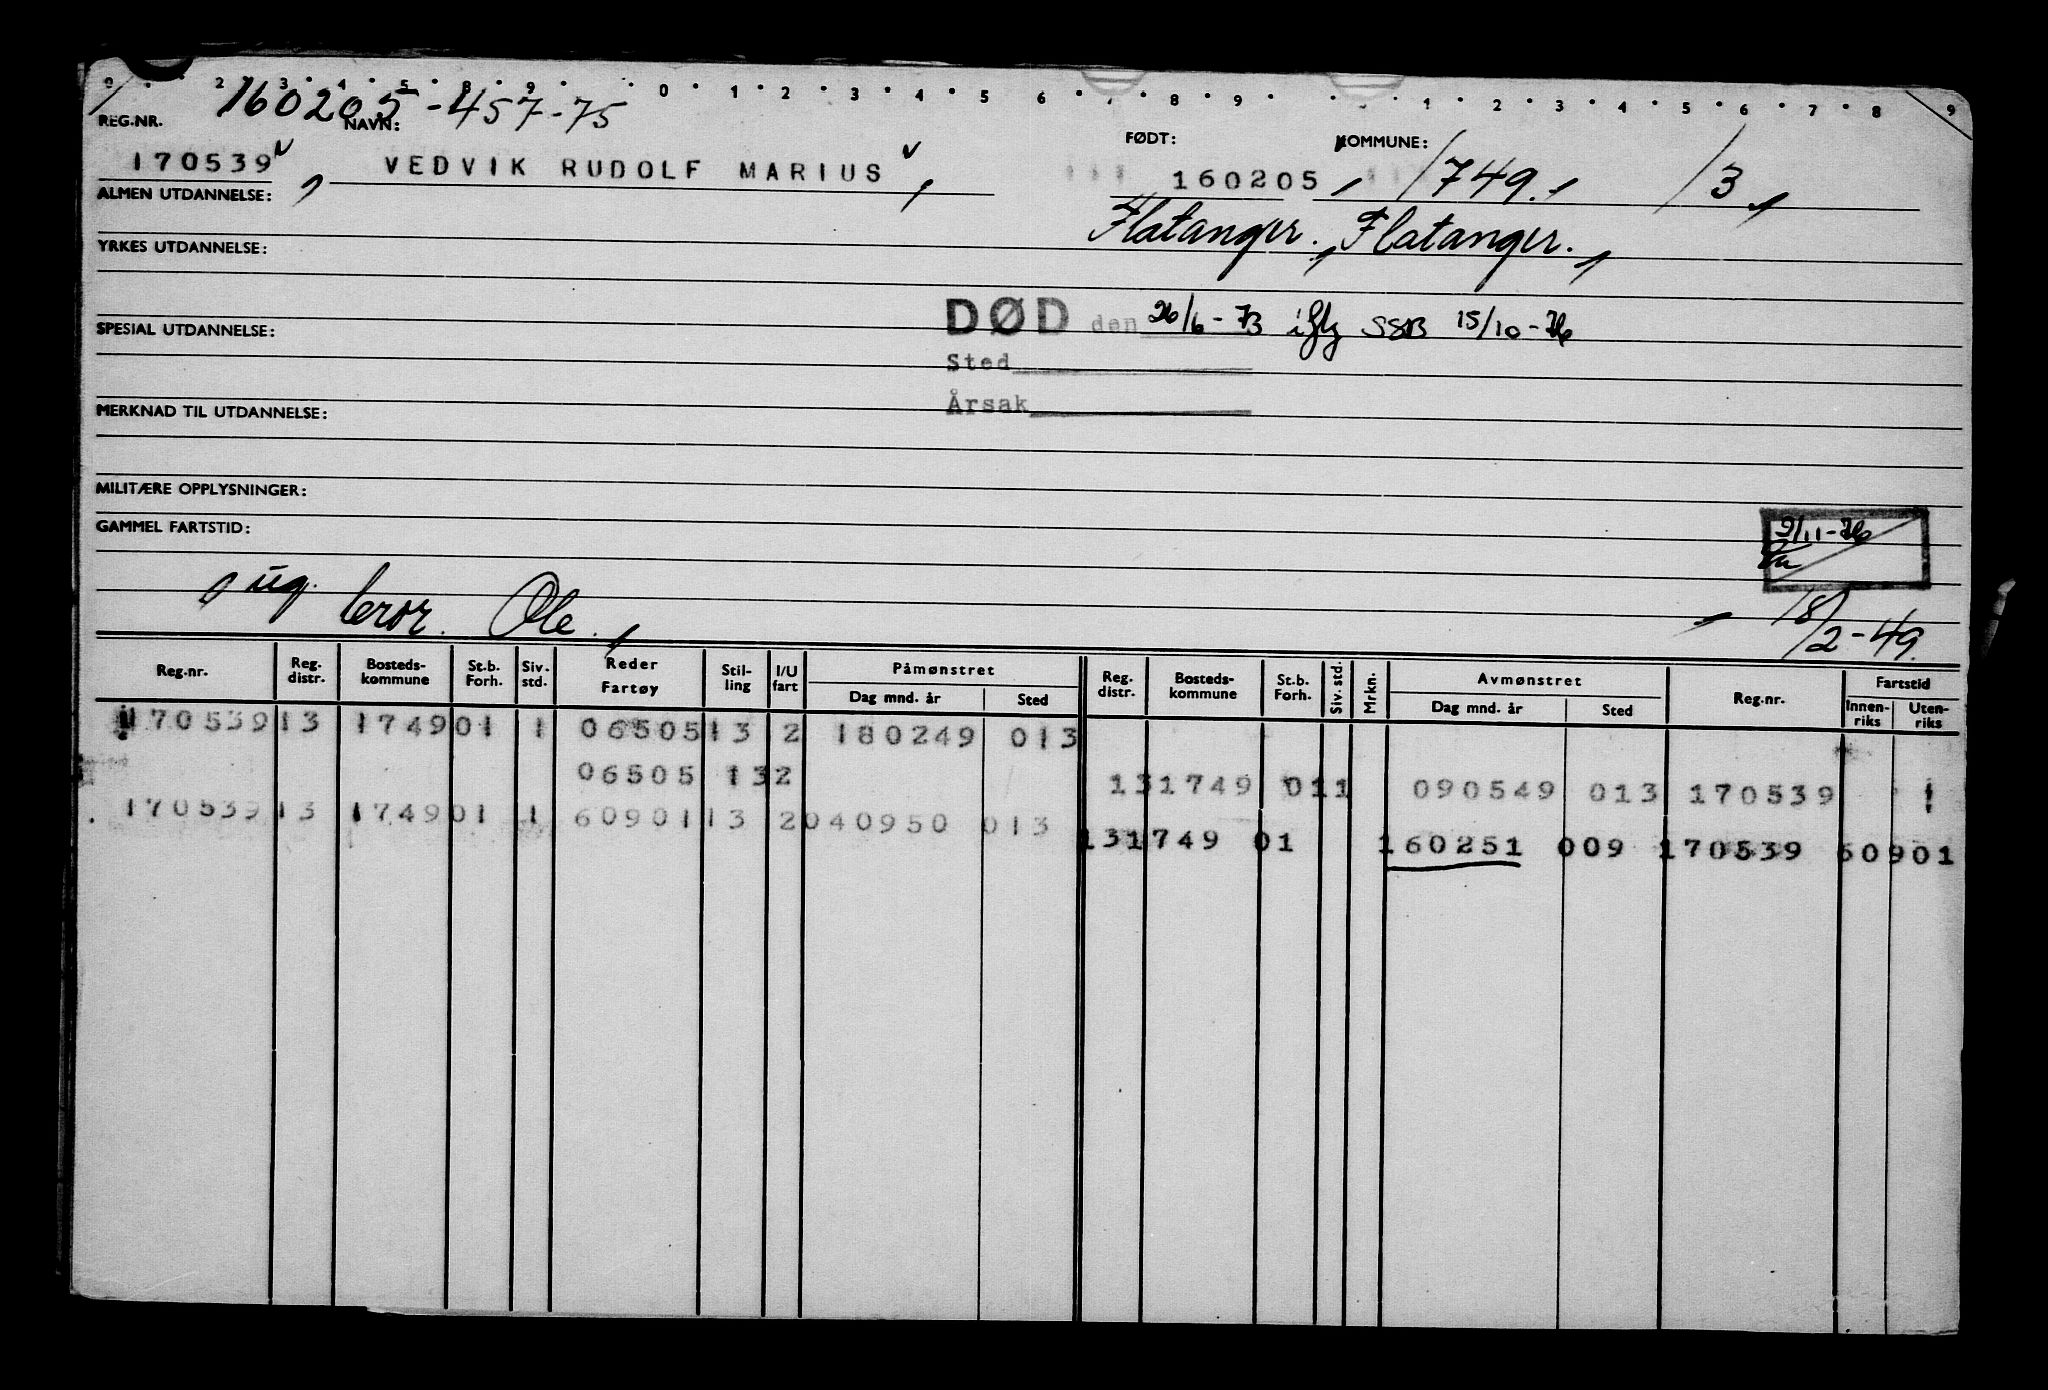 160205-457-75
REG.NR. NAVN: FØDT: KOMMUNE:
170539 VEDVIK RUDOLF MARIUS 160205 1749. 13
ALMEN UTDANNELSE:
Flatanger. Flatanger.
YRKES UTDANNELSE:
DØD den 26/6-73 iflg SSB 15/10-76
SPESIAL UTDANNELSE:
Sted
Årsak
MERKNAD TIL UTDANNELSE:
MILITÆRE OPPLYSNINGER:
GAMMEL FARTSTID:
9/11-76
ug. bror. Ole. 18/2-49.
Reg.nr. Reg. distr. Bosteds- kommune St.b. Forh. Siv. std. Reder Fartøy Stil- ling I/U fart Påmønstret Dag mnd. år Sted Reg. distr. Bosteds- kommune St.b. Forh. Siv. std. Mrkn. Avmønstret Dag mnd. år Sted Reg.nr. Fartstid Innen- riks Uten- riks
170539 13 1749 01 1 06505 13 2 180249 013
06505 13 2 13 1749 01 1 090549 013 170539 1
170539 13 1749 01 1 60901 13 2 040950 013
13 1749 01 160251 009 170539 60901